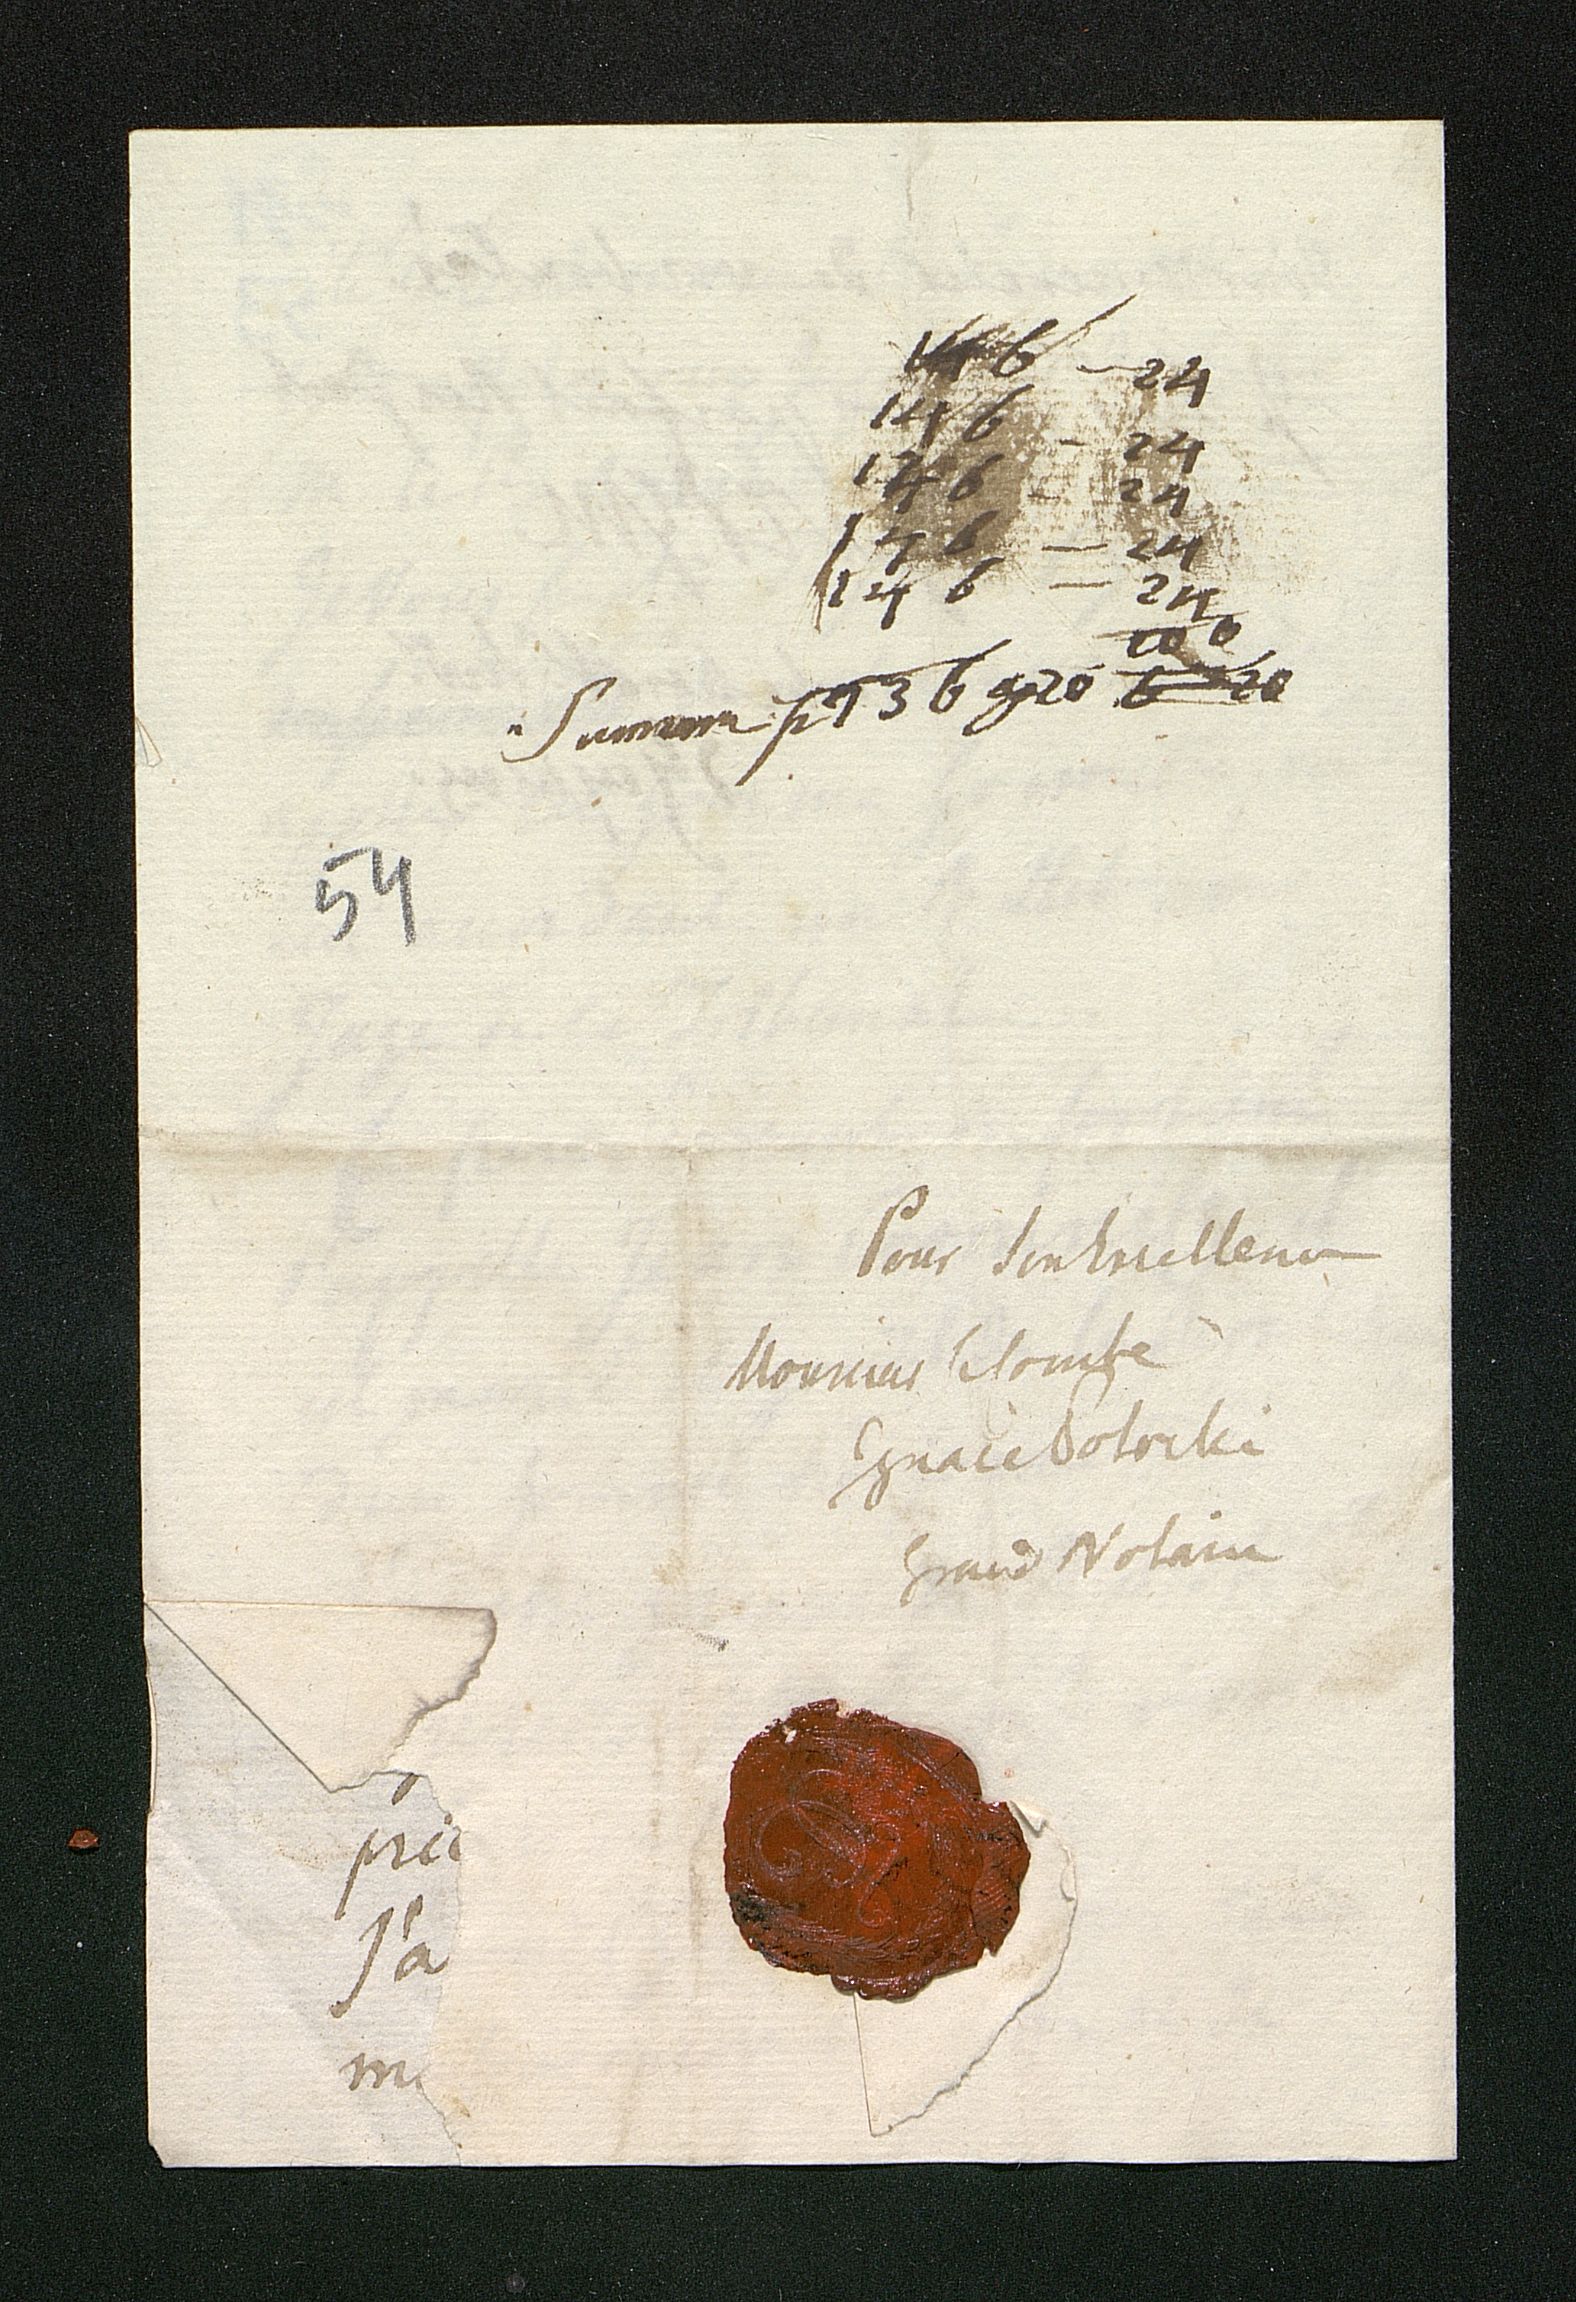 146 – 24
146 – 24
146 – 24
146 – 24
146 – 24
Summa
54
Pour Son Excellence
Monsieur le Comte
Ignace Potocki
Grand Notaire
pri
J'a
m